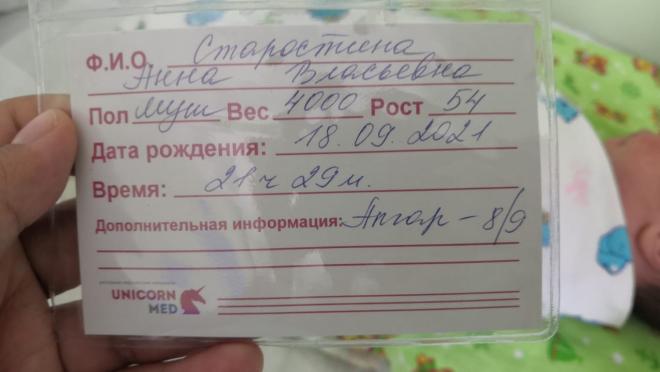 Ф.И.О. Старостина
Анна Власьевна
Пол муж Вес 4000 Рост 54
Дата рождения: 18.09.2021
Время: 21ч 29м.
Дополнительная информация: Апгар - 8/9
UNICORN
MED